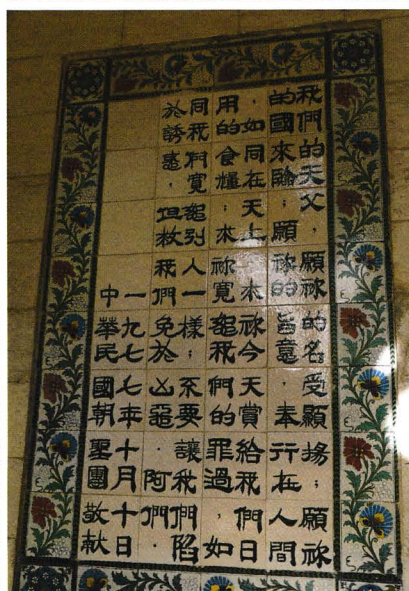 我們的天父，願祢的名受顯揚；願祢
的國來臨；願祢的旨意，奉行在人間
，如同在天上。求祢今天賞給我們日
用的食糧；求祢寬恕我們的罪過，如
同我們寬恕別人一樣；不要讓我們陷
於誘惑，但救我們免於凶惡．阿們．
一九七七年十月十日
中華民國朝聖團敬献